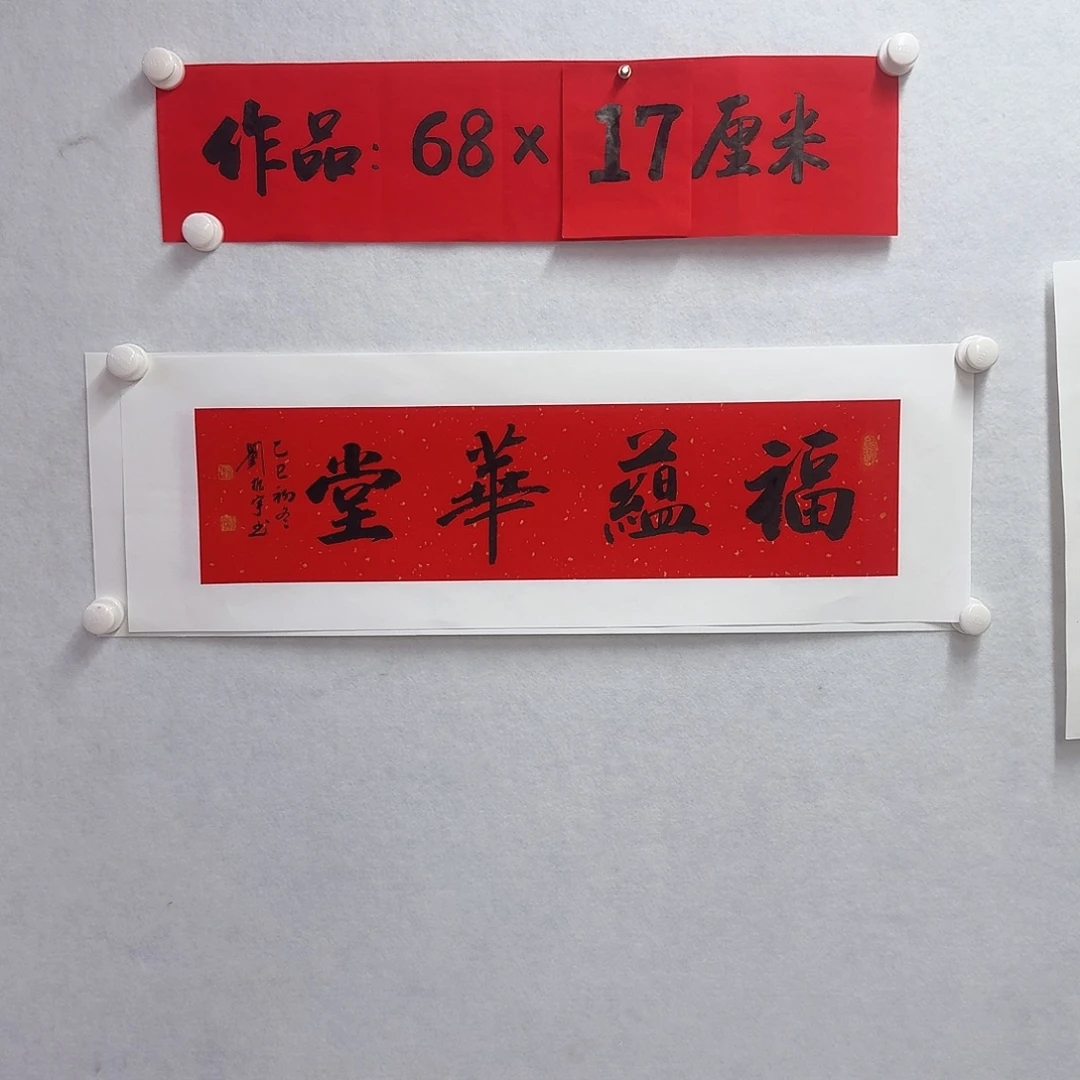 作品：68×17厘米
福蘊華堂
乙巳初冬
劉振宇书